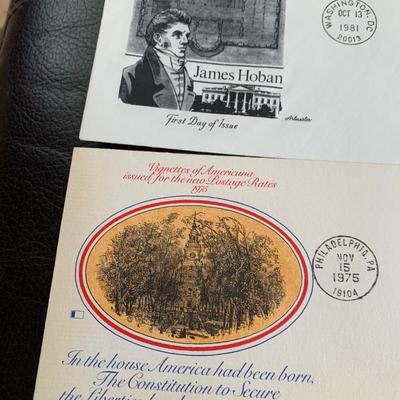 WASHINGTON, DC
OCT 13
1981
20013
James Hoban
First Day of Issue
Artmaster
Vignettes of Americana
issued for the new Postage Rates
1975
PHILADELPHIA, PA
NOV
15
1975
19104
In the house America had been born,
The Constitution to Secure
the Liberties